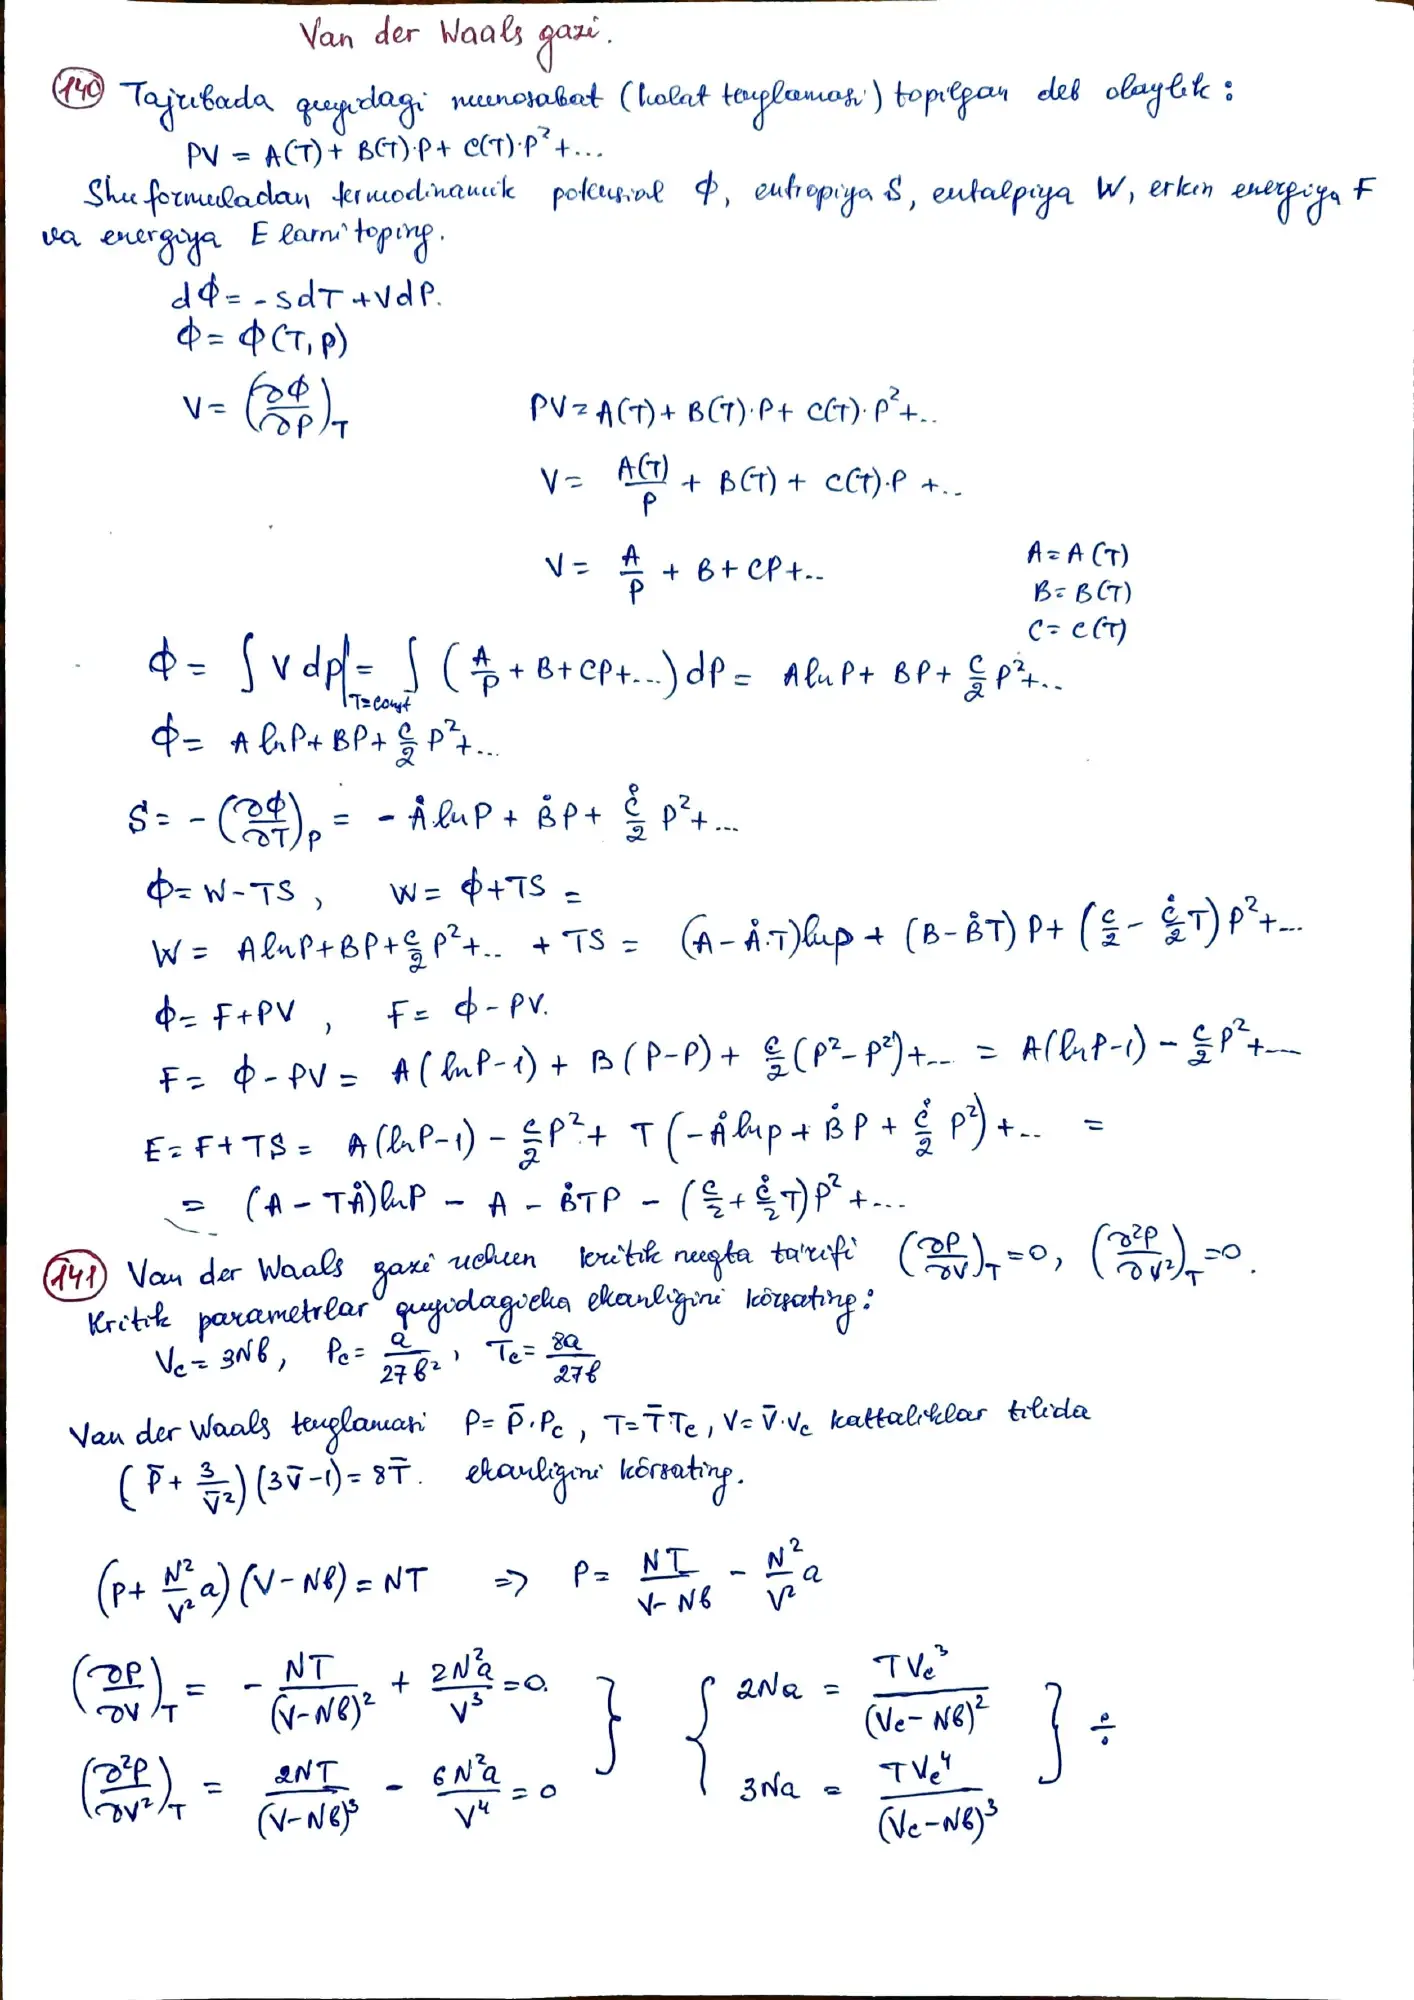 Van der Waals gazi.
140 Tajribada quyidagi munosabat (holat tenglamasi) topilgan deb olaylik:
PV = A(T) + B(T)·P + C(T)·P² + ...
Shu formuladan termodinamik potensial Φ, entropiya S, entalpiya W, erkin energiya F
va energiya E larni toping.
dΦ = - SdT + VdP.
Φ = Φ(T, P)
V = (∂Φ/∂P)_T PV = A(T) + B(T)·P + C(T)·P² + ..
V = A(T)/P + B(T) + C(T)·P + ..
V = A/P + B + CP + .. A = A(T)
B = B(T)
C = C(T)
Φ = ∫ V dp|_{T=const} = ∫ (A/P + B + CP + ...) dP = A ln P + BP + C/2 P² + ..
Φ = A ln P + BP + C/2 P² + ...
S = - (∂Φ/∂T)_P = - Å ln P + B̊ P + C̊/2 P² + ...
Φ = W - TS , W = Φ + TS =
W = A ln P + BP + C/2 P² + .. + TS = (A - Å·T) ln p + (B - B̊T) P + (C/2 - C̊/2 T) P² + ...
Φ = F + PV , F = Φ - PV.
F = Φ - PV = A(ln P - 1) + B(P - P) + C/2 (P² - P²) + ... = A(ln P - 1) - C/2 P² + ...
E = F + TS = A(ln P - 1) - C/2 P² + T(- Å ln p + B̊ P + C̊/2 P²) + ... =
= (A - TÅ) ln P - A - B̊TP - (C/2 + C̊/2 T) P² + ...
141 Van der Waals gazi uchun kritik nuqta ta'rifi (∂P/∂V)_T = 0, (∂²P/∂V²)_T = 0.
Kritik parametrlar quyidagicha ekanligini körsating:
Vc = 3Nb, Pc = a/27b², Tc = 8a/27b
Van der Waals tenglamasi P = P̄·Pc , T = T̄·Tc , V = V̄·Vc kattaliklar tilida
(P̄ + 3/V̄²)(3V̄ - 1) = 8T̄. ekanligini körsating.
(P + N²/V² a)(V - Nb) = NT ⇒ P = NT/(V - Nb) - N²/V² a
(∂P/∂V)_T = - NT/(V - Nb)² + 2N²a/V³ = 0. } { 2Na = TVc³/(Vc - Nb)² } ÷
(∂²P/∂V²)_T = 2NT/(V - Nb)³ - 6N²a/V⁴ = 0 3Na = TVc⁴/(Vc - Nb)³